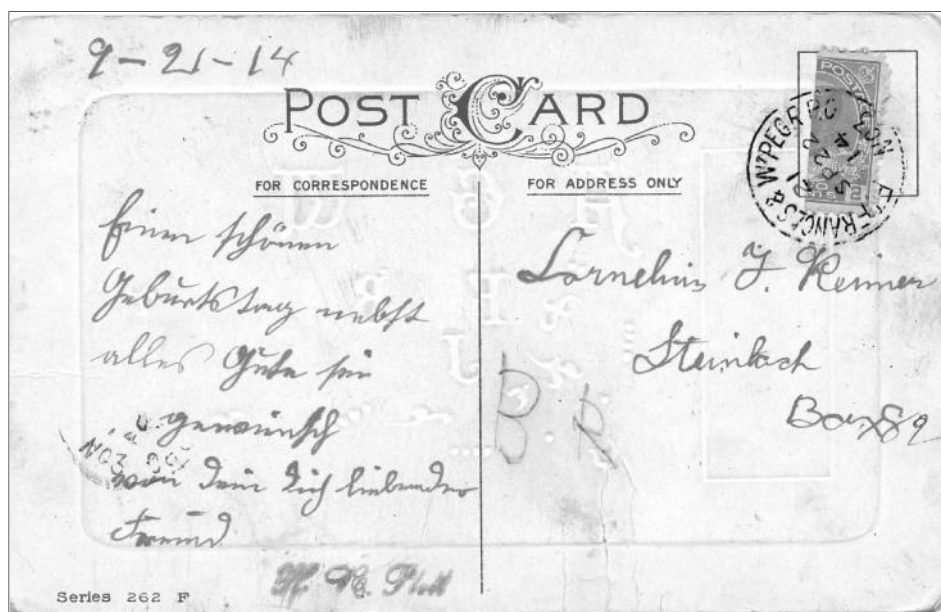 9-21-14
POST CARD
FOR CORRESPONDENCE
FOR ADDRESS ONLY
POSTA
Einen schönen
Geburtstag nebst
alles Gute sei
gewünsch
von dein dich liebender
Freund
Cornelius J. Reimer
Steinbach
Box 89
Series 262 F